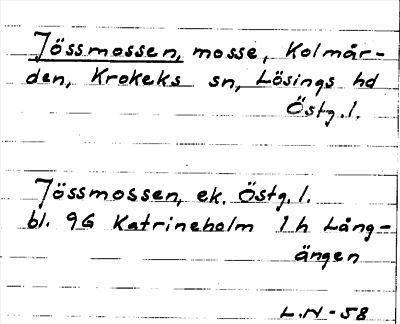 Jössmossen, mosse, Kolmår-
den, Krokeks sn, Lösings hd
Östg.l.
Jössmossen, ek. Östg.l.
bl. 9G Katrineholm 1h Lång-
ängen
L.N-58